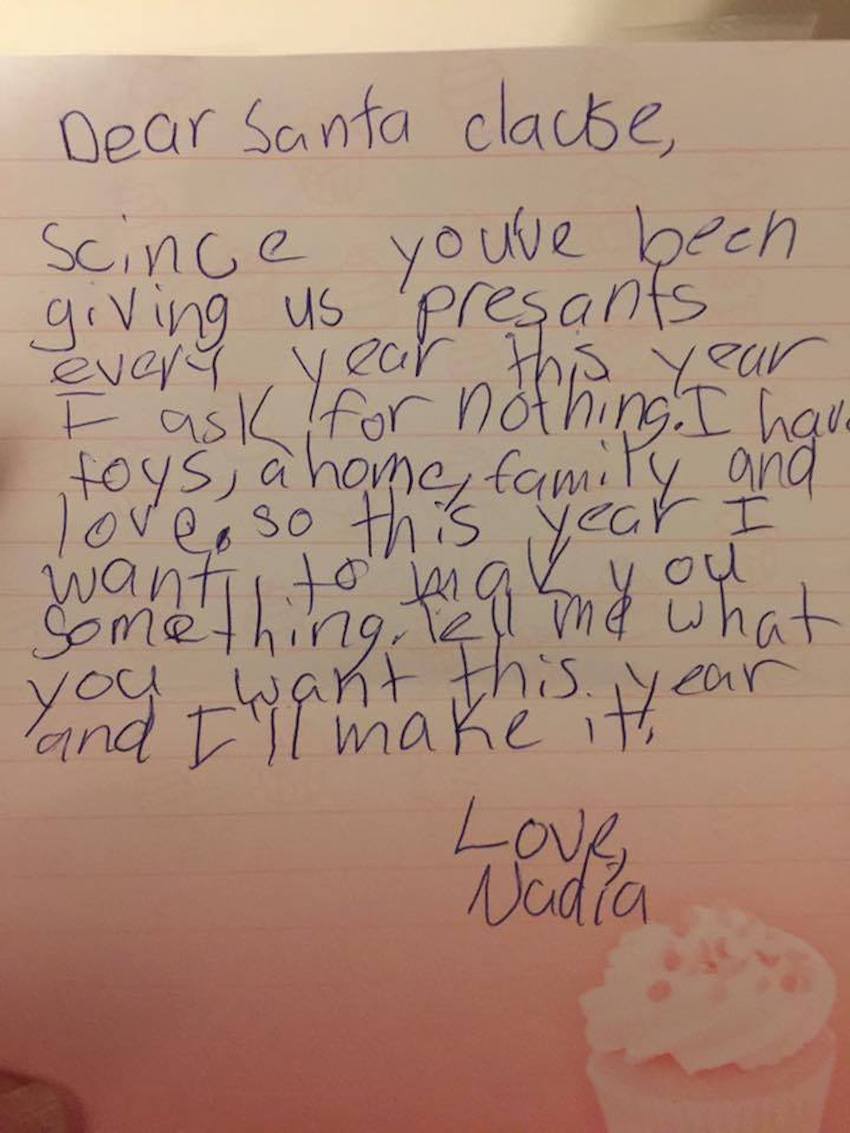 Dear Santa clause,
Scince you've been
giving us presants
every year this year
I ask for nothing. I hav
toys, a home, family and
love. so this year I
want to mak you
something. Tell me what
you want this year
and I'll make it.
Love,
Nadia